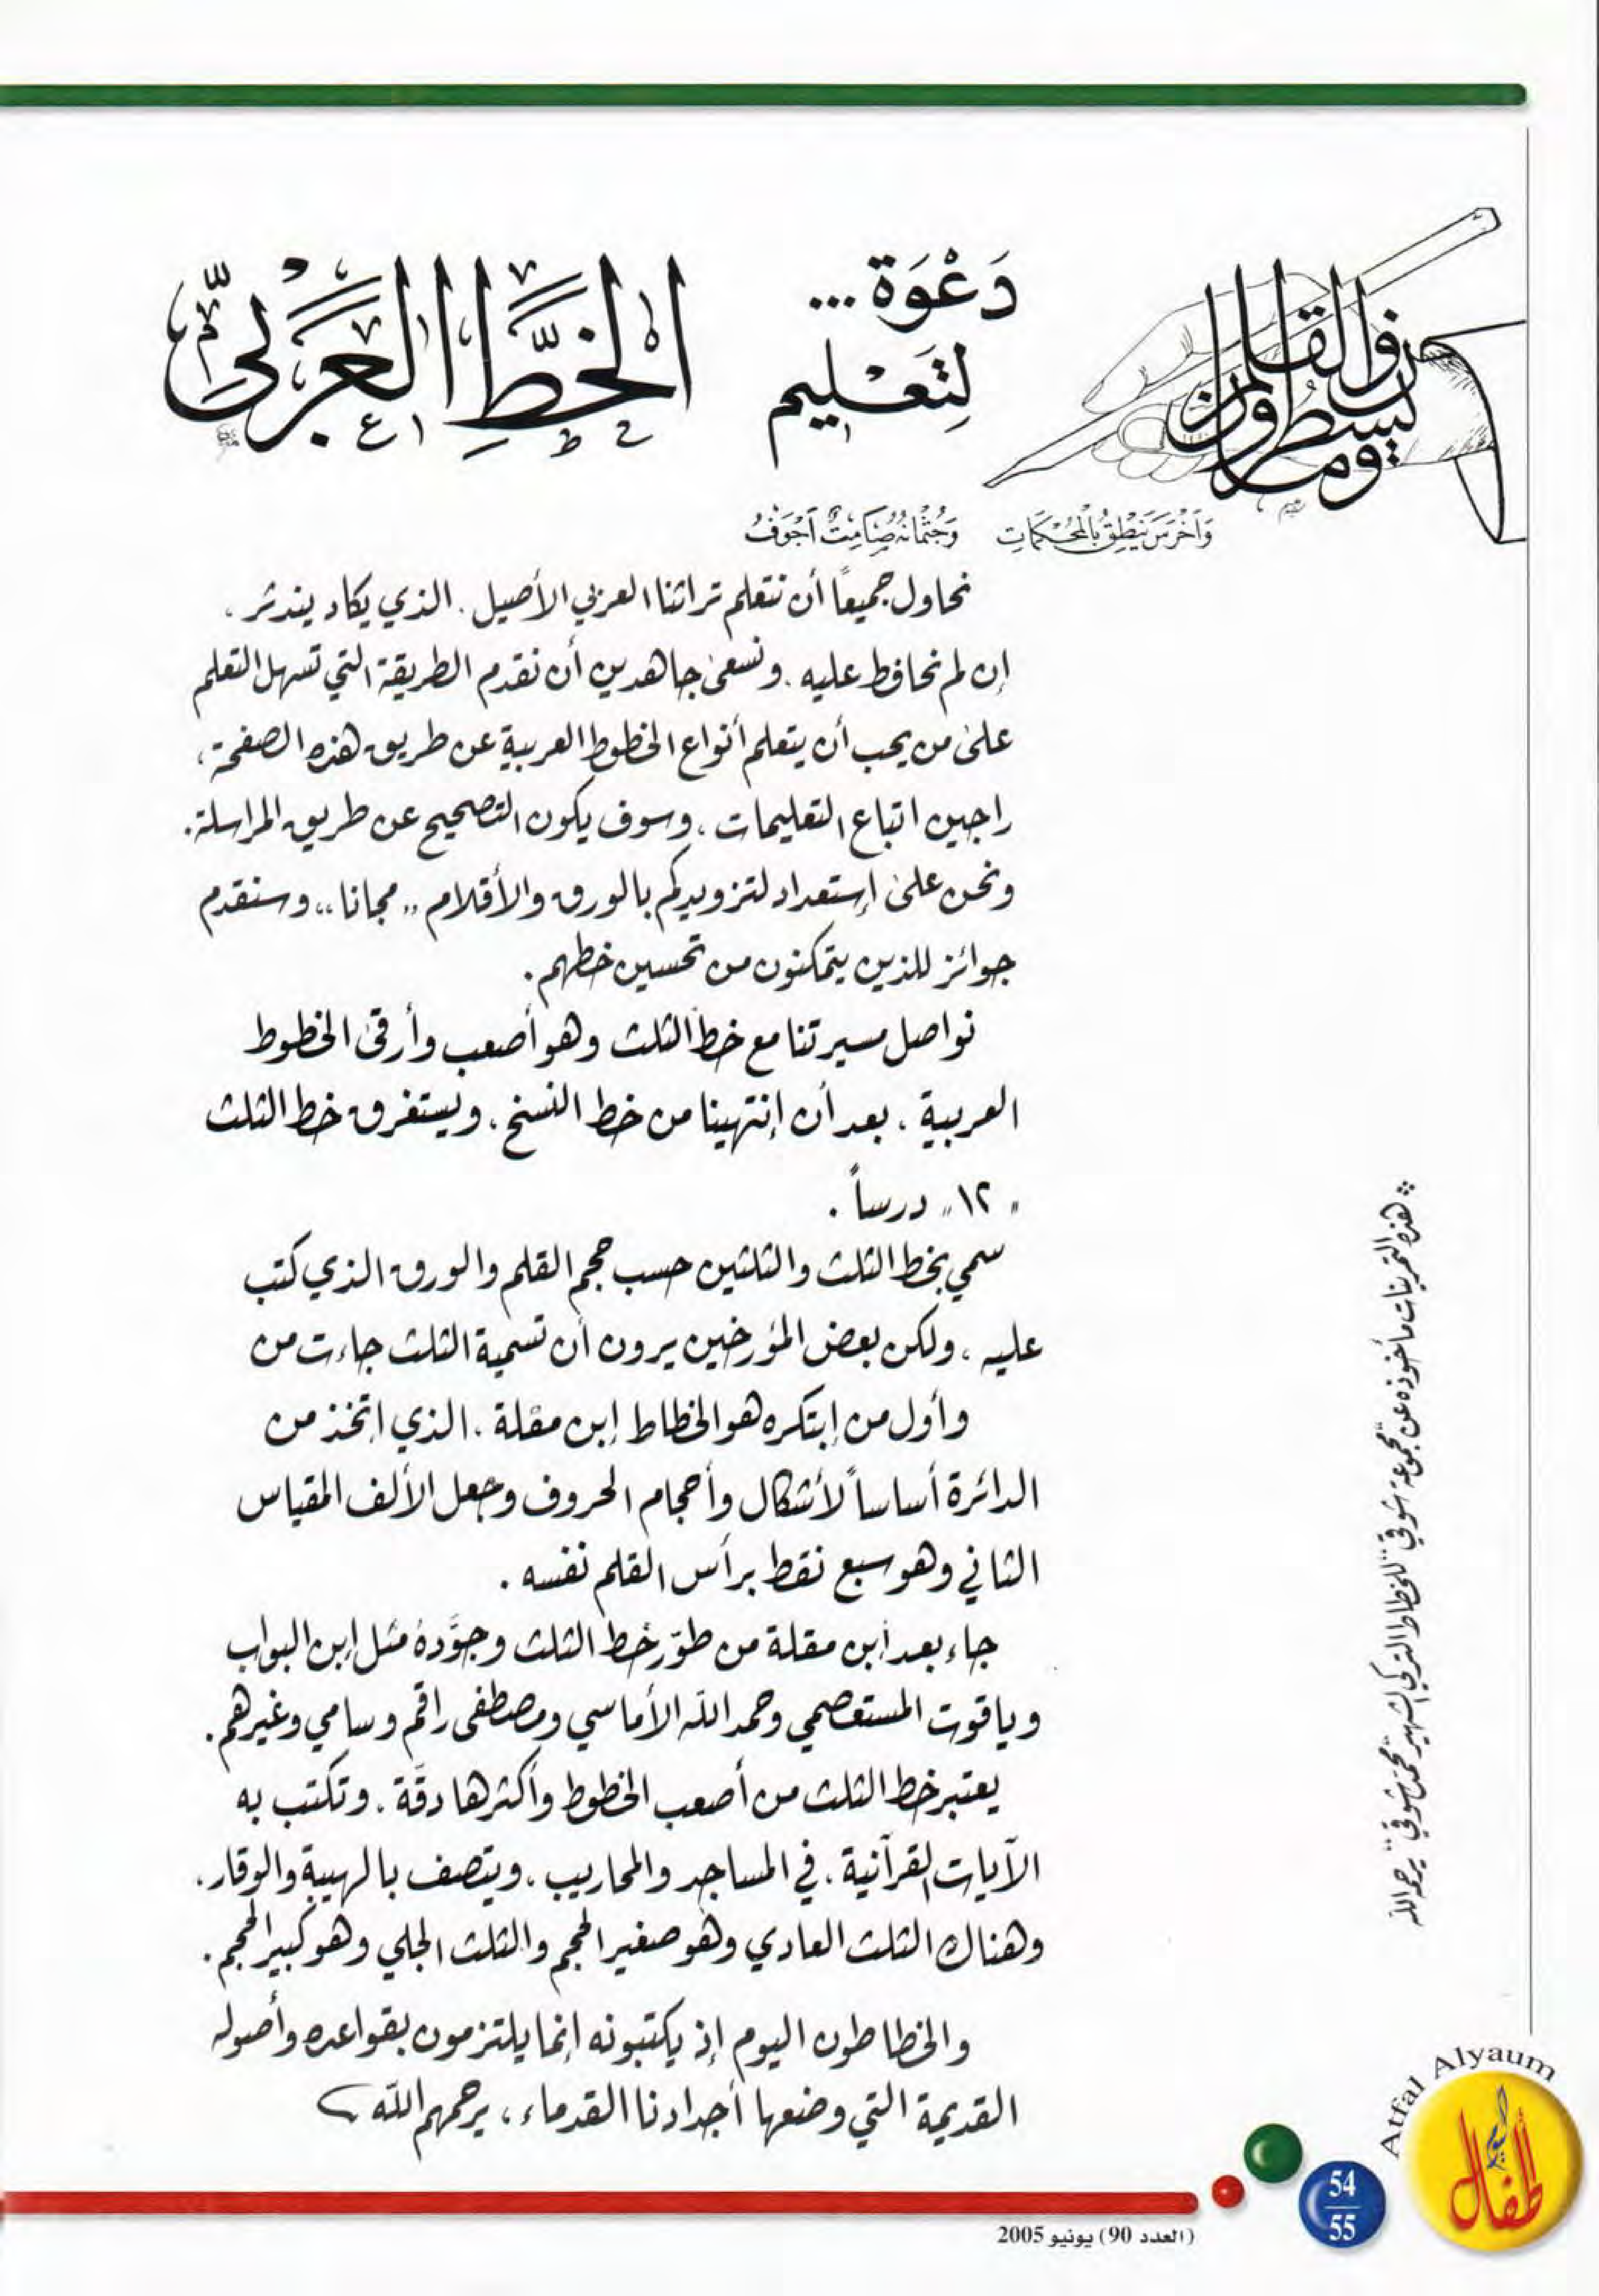 دَعْوَة...
لِتَعْليم
الخَطِّ العَرَبيّ
ن والقلم وما يسطرون
وَأَخْرَسَ يَنْطِقُ بِالْمُحْكَمَاتِ وَجُثْمَانُهُ صَامِتٌ أَجْوَفُ
نحاول جميعاً أن نتعلم تراثنا العربي الأصيل. الذي يكاد يندثر،
إن لم نحافظ عليه. ونسعى جاهدين أن نقدم الطريقة التي تسهل التعلم
على من يحب أن يتعلم أنواع الخطوط العربية عن طريق هذه الصفحة،
راجين اتباع التعليمات، وسوف يكون التصحيح عن طريق المراسلة.
ونحن على إستعداد لتزويدكم بالورق والأقلام "مجانا"، وسنقدم
جوائز للذين يتمكنون من تحسين خطهم.
نواصل مسيرتنا مع خط الثلث وهو أصعب وأرقى الخطوط
العربية، بعد أن إنتهينا من خط النسخ، ويستغرق خط الثلث
"١٢" درساً.
سمي بخط الثلث والثلثين حسب حجم القلم والورق الذي كتب
عليه، ولكن بعض المؤرخين يرون أن تسمية الثلث جاءت من
وأول من إبتكره هو الخطاط إبن مقلة، الذي اتخذ من
الدائرة أساساً لأشكال وأحجام الحروف وجعل الألف المقياس
الثاني وهو سبع نقط برأس القلم نفسه.
جاء بعد أبن مقلة من طوّر خط الثلث وجوَّدهُ مثل إبن البواب
وياقوت المستعصمي وحمد الله الأماسي ومصطفى راقم وسامي وغيرهم.
يعتبر خط الثلث من أصعب الخطوط وأكثرها دقّة. وتكتب به
الآيات القرآنية، في المساجد والمحاريب، ويتصف بالهيبة والوقار،
وهناك الثلث العادي وهو صغير الحجم والثلث الجلي وهو كبير الحجم.
والخطاطون اليوم إذ يكتبونه إنما يلتزمون بقواعده وأصوله
القديمة التي وضعها أجدادنا القدماء، يرحمهم الله
* هذه التمرينات مأخوذة عن "مجموعة شوقي" للخطاط التركي الشهير "محمد شوقي" يرحمه الله
Atfal Alyaum
أطفال اليوم
54
55
(العدد 90) يونيو 2005